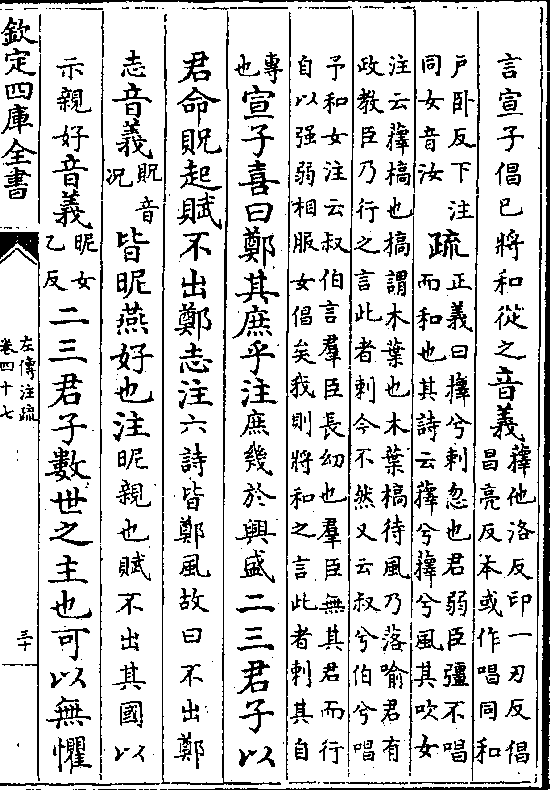 言宣子倡已將和從之音義蘀他洛反印一刃反倡昌亮反本或作唱同和
戸卧反下注同女音汝疏正義曰蘀兮刺忽也君弱臣彊不唱而和也其詩云蘀兮蘀兮風其吹女
注云蘀槁也槁謂木葉也木葉槁待風乃落喻君有
政教臣乃行之言此者刺今不然又云叔兮伯兮唱
予和女注云叔伯言羣臣長幼也羣臣無其君而行
自以强弱相服女倡矣我則將和之言此者刺其自
專也宣子喜曰鄭其庶乎注庶幾於興盛二三君子以
君命貺起賦不出鄭志注六詩皆鄭風故曰不出鄭
志音義貺音况皆昵燕好也注昵親也賦不出其國以
示親好音義昵女乙反二三君子數世之主也可以無懼
欽定四庫全書
左傳注疏
卷四十七
三十